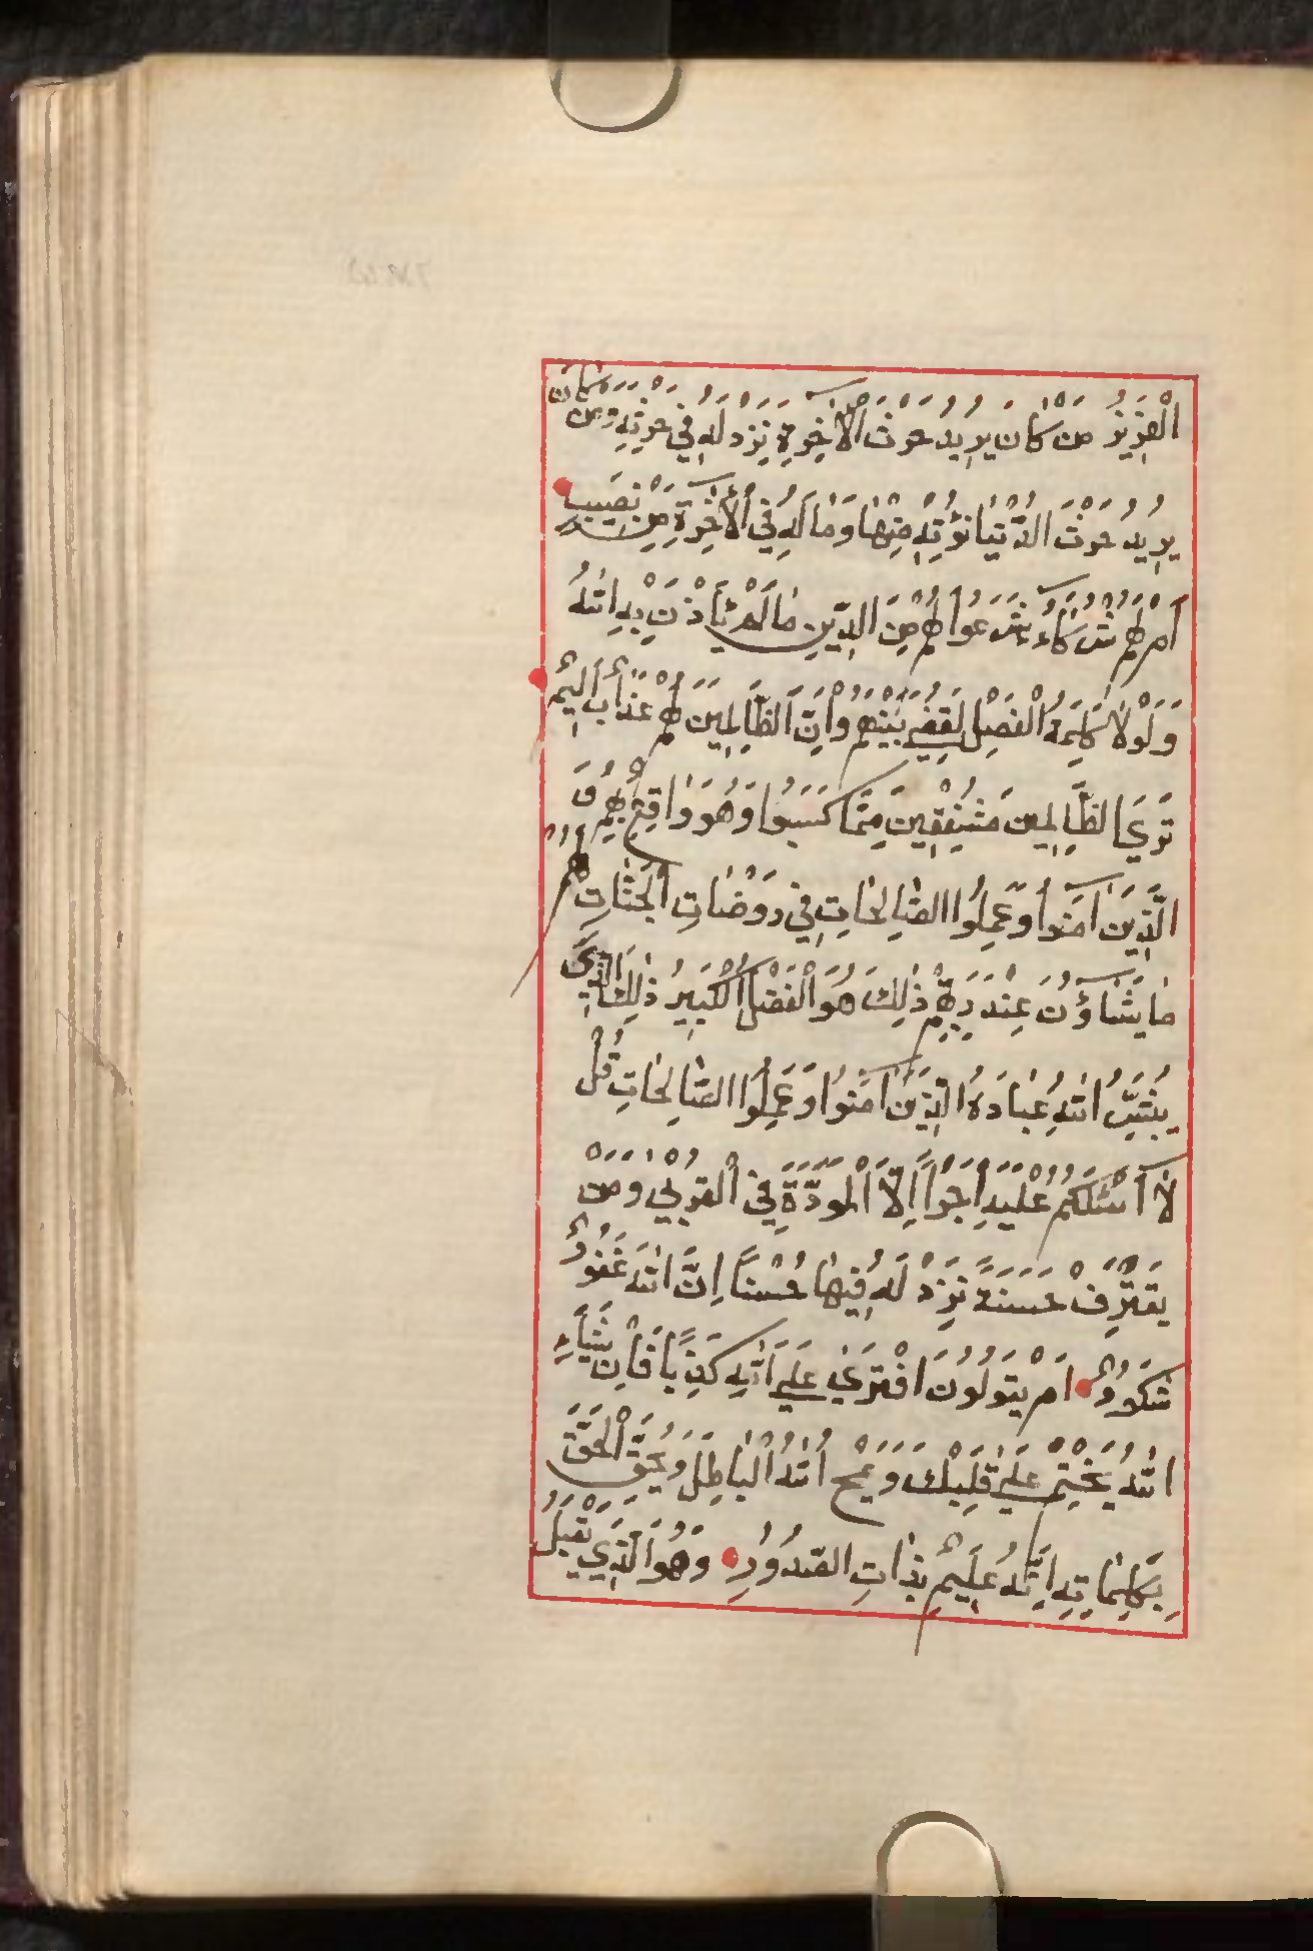 الْعَزِيزُ مَنْ كَانَ يُرِيدُ حَرْثَ الْآخِرَةِ نَزِدْ لَهُ فِي حَرْثِهِ وَمَنْ كَانَ
يُرِيدُ حَرْثَ الدُّنْيَا نُؤْتِهِ مِنْهَا وَمَا لَهُ فِي الْآخِرَةِ مِنْ نَصِيبٍ
أَمْ لَهُمْ شُرَكَاءُ شَرَعُوا لَهُمْ مِنَ الدِّينِ مَا لَمْ يَأْذَنْ بِهِ اللَّهُ
وَلَوْلَا كَلِمَةُ الْفَصْلِ لَقُضِيَ بَيْنَهُمْ وَإِنَّ الظَّالِمِينَ لَهُمْ عَذَابٌ أَلِيمٌ
تَرَى الظَّالِمِينَ مُشْفِقِينَ مِمَّا كَسَبُوا وَهُوَ وَاقِعٌ بِهِمْ وَ
الَّذِينَ آمَنُوا وَعَمِلُوا الصَّالِحَاتِ فِي رَوْضَاتِ الْجَنَّاتِ لَهُمْ
مَا يَشَاؤُنَ عِنْدَ رَبِّهِمْ ذَلِكَ هُوَ الْفَضْلُ الْكَبِيرُ ذَلِكَ الَّذِي
يُبَشِّرُ اللَّهُ عِبَادَهُ الَّذِينَ آمَنُوا وَعَمِلُوا الصَّالِحَاتِ قُلْ
لَا أَسْئَلُكُمْ عَلَيْهِ أَجْرًا إِلَّا الْمَوَدَّةَ فِي الْقُرْبَى وَمَنْ
يَقْتَرِفْ حَسَنَةً نَزِدْ لَهُ فِيهَا حُسْنًا إِنَّ اللَّهَ غَفُورٌ
شَكُورٌ أَمْ يَقُولُونَ افْتَرَى عَلَى اللَّهِ كَذِبًا فَإِنْ يَشَاءِ
اللَّهُ يَخْتِمْ عَلَى قَلْبِكَ وَيَمْحُ اللَّهُ الْبَاطِلَ وَيُحِقُّ الْحَقَّ
بِكَلِمَاتِهِ إِنَّهُ عَلِيمٌ بِذَاتِ الصُّدُورِ وَهُوَ الَّذِي يَقْبَلُ